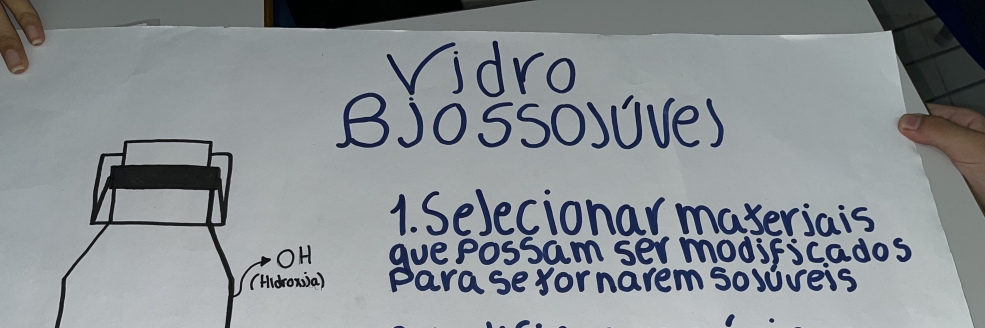 Vidro
Biossolúvel
1. Selecionar materiais
que possam ser modificados
para se tornarem solúveis
OH
(Hidroxila)